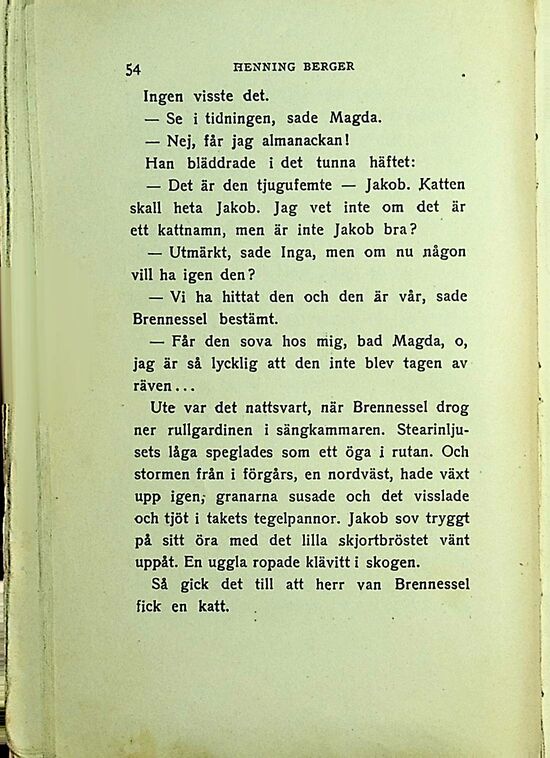 54 HENNING BERGER
Ingen visste det.
— Se i tidningen, sade Magda.
— Nej, får jag almanackan!
Han bläddrade i det tunna häftet:
— Det är den tjugufemte — Jakob. Katten
skall heta Jakob. Jag vet inte om det är
ett kattnamn, men är inte Jakob bra?
— Utmärkt, sade Inga, men om nu någon
vill ha igen den?
— Vi ha hittat den och den är vår, sade
Brennessel bestämt.
— Får den sova hos mig, bad Magda, o,
jag är så lycklig att den inte blev tagen av
räven...
Ute var det nattsvart, när Brennessel drog
ner rullgardinen i sängkammaren. Stearinlju-
sets låga speglades som ett öga i rutan. Och
stormen från i förgårs, en nordväst, hade växt
upp igen; granarna susade och det visslade
och tjöt i takets tegelpannor. Jakob sov tryggt
på sitt öra med det lilla skjortbröstet vänt
uppåt. En uggla ropade klävitt i skogen.
Så gick det till att herr van Brennessel
fick en katt.